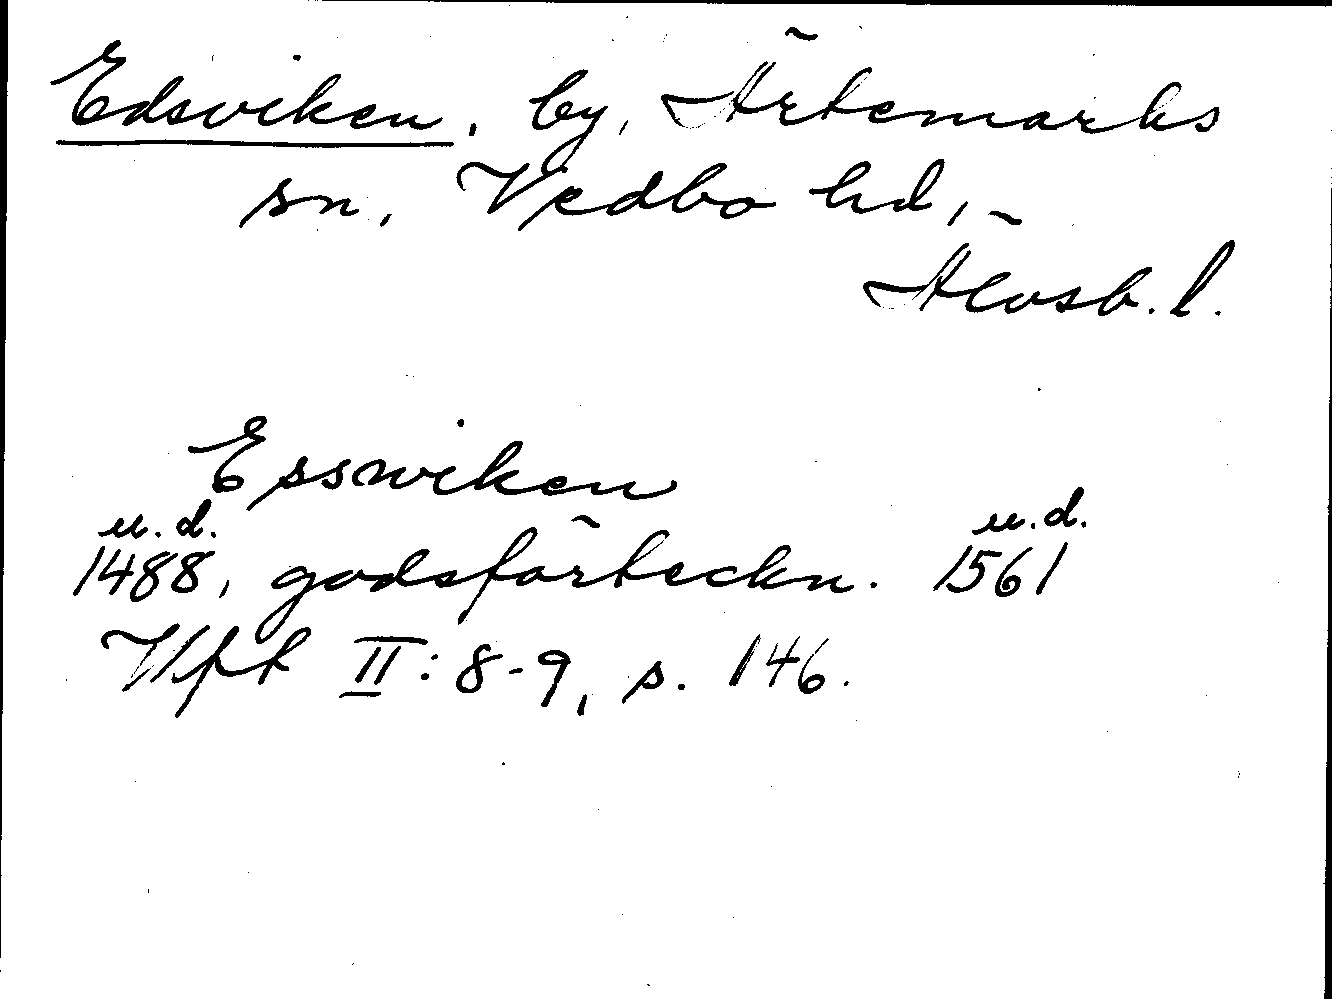 Edsviken, by, Ärtemarks
sn, Vedbo hd,
Älvsb. l.
Esswiken
u. d. u. d.
1488, godsförteckn. 1561
Hft II: 8-9, s. 146.